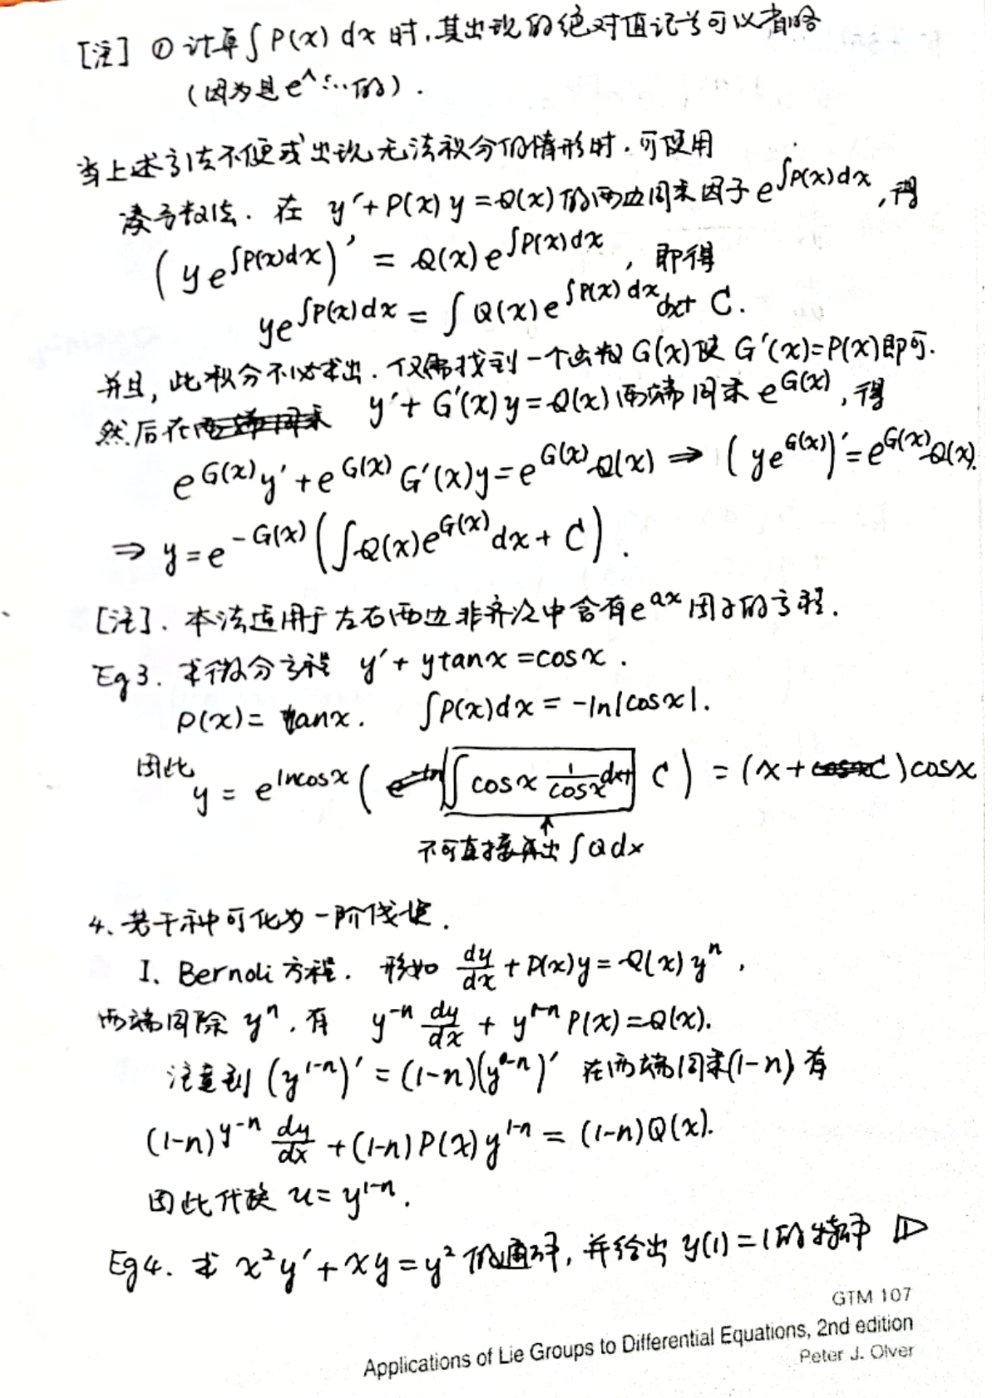 [注] ① 计算∫P(x) dx 时,其出现的绝对值记号可以省略
(因为是e^{…的).
当上述方法不便或出现无法积分的情形时.可使用
凑导数法. 在 y'+P(x)y=Q(x)的两边同乘因子e^{∫P(x)dx},得
(ye^{∫P(x)dx})' = Q(x)e^{∫P(x)dx}, 即得
ye^{∫P(x)dx} = ∫Q(x)e^{∫P(x)dx}dx+ C.
并且,此积分不必求出.仅需找到一个函数G(x)使G'(x)=P(x)即可.
然后在 y'+G'(x)y=Q(x)两端同乘e^{G(x)},得
e^{G(x)}y'+e^{G(x)}G'(x)y=e^{G(x)}Q(x) ⇒ (ye^{G(x)})'=e^{G(x)}Q(x).
⇒ y=e^{-G(x)}(∫Q(x)e^{G(x)}dx+C).
[注]. 本法适用于左右两边非齐次中含有e^{ax}因子的方程.
Eg3. 求微分方程 y'+ytanx=cosx.
P(x)= tanx. ∫P(x)dx=-ln|cosx|.
因此 y= e^{lncosx}(∫cosx \frac{1}{cosx}dx+ C) = (x+C)cosx
不可直接算出∫Qdx
4、若干种可化为一阶线性.
I、Bernoli方程. 形如 \frac{dy}{dx}+P(x)y=Q(x)y^n,
两端同除y^n,有 y^{-n}\frac{dy}{dx}+y^{1-n}P(x)=Q(x).
注意到 (y^{1-n})'=(1-n)(y^{-n})' 在两端同乘(1-n)有
(1-n)y^{-n}\frac{dy}{dx}+(1-n)P(x)y^{1-n}=(1-n)Q(x).
因此代换 u=y^{1-n}.
Eg4. 求 x²y'+xy=y²的通解,并给出y(1)=1的特解 ▷
GTM 107
Applications of Lie Groups to Differential Equations, 2nd edition
Peter J. Olver